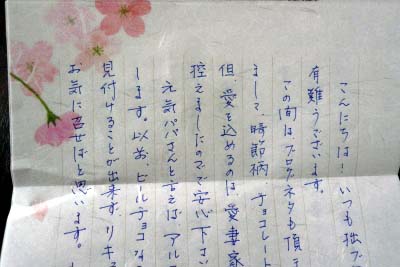 こんにちは！いつも拙ブ
有難うございます。
この間はブログネタも頂
まして時節柄、チョコレート
但、愛を込めるのは愛妻家
控えましたのでご安心下さい
元気パパさんと言えばアル
します。以前、ビールチョコな
見付けることが出来ず、リキ
お気に召せばと思います。